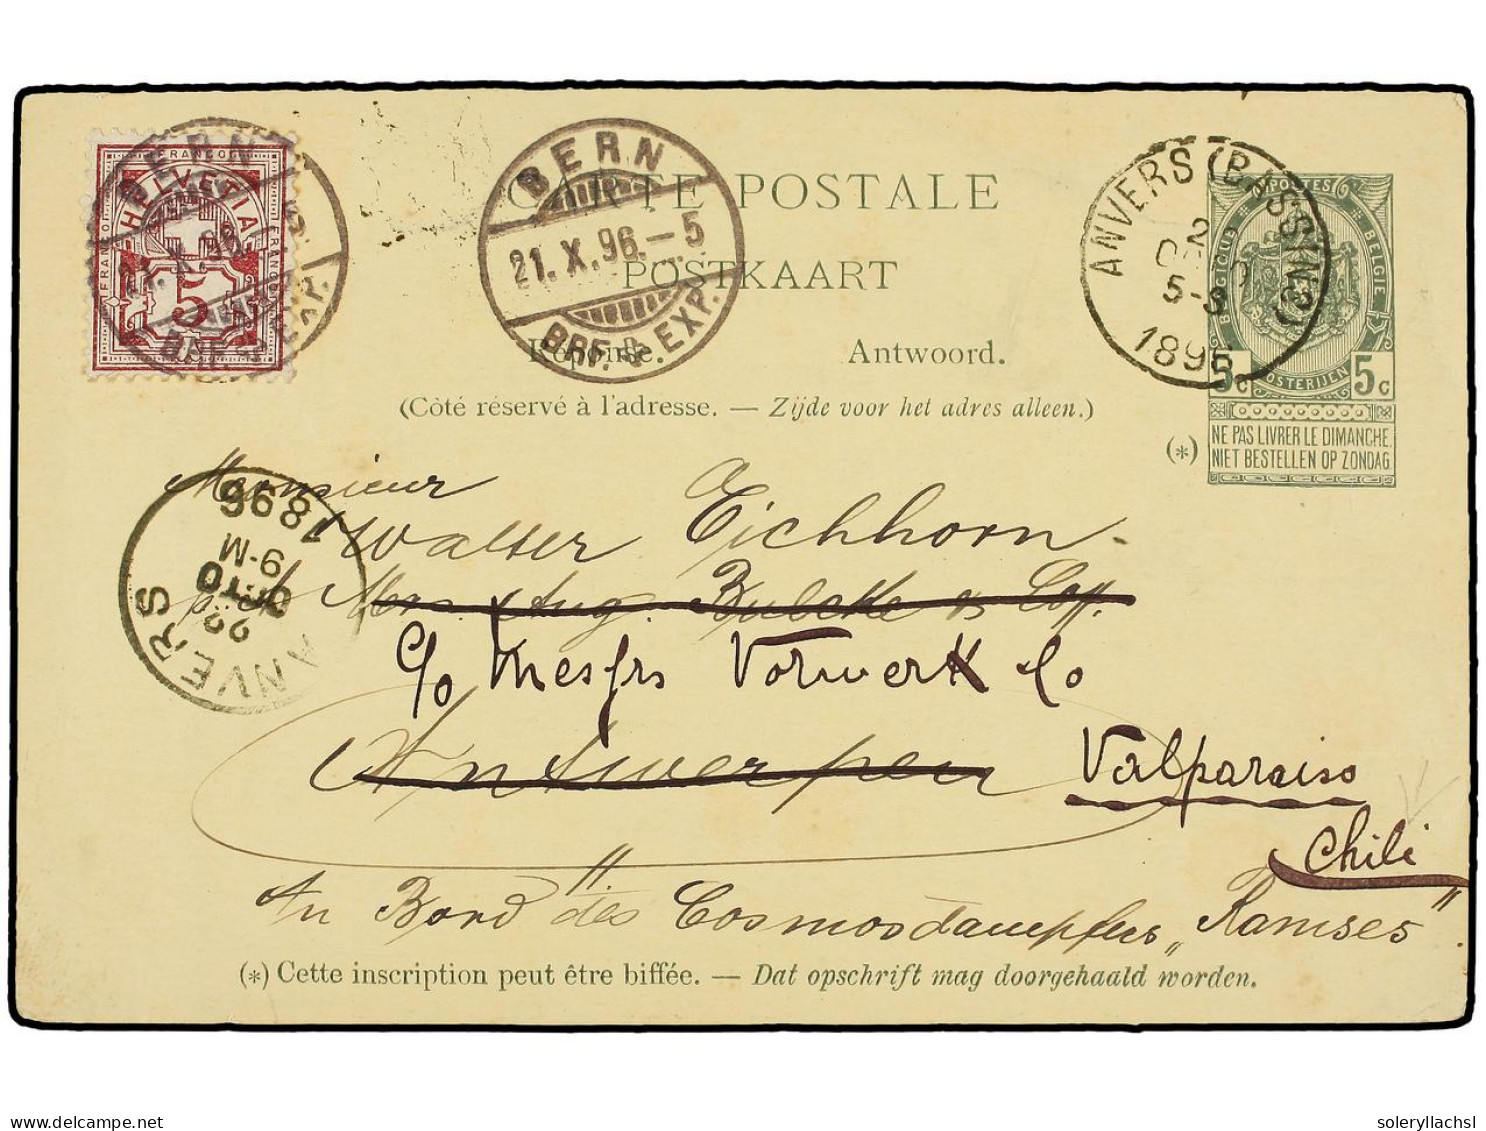 FRANCO
HELVETIA
FRANCO
FRANCO
5
BERN
21.X.96.-5
BRF. & EXP.
BERN
21.X.96.-5
BRF. & EXP.
CARTE POSTALE
POSTKAART
Réponse. Antwoord.
(Côté réservé à l'adresse. — Zijde voor het adres alleen.)
ANVERS (BASSINS)
5-S
1896
POSTES
BELGIQUE
BELGIE
POSTERIJEN
5c 5c
(*)
NE PAS LIVRER LE DIMANCHE.
NIET BESTELLEN OP ZONDAG
ANVERS
22
OCTO
9-M
1896
Monsieur
Walter Eichhorn
Aug. Bulcke & Co
c/o Messrs Vorwerk Co
Antwerpen Valparaiso
Chili
An Bord des Cosmosdampfers „Ramses"
(*) Cette inscription peut être biffée. — Dat opschrift mag doorgehaald worden.
delcampe.net
soleryllachsl